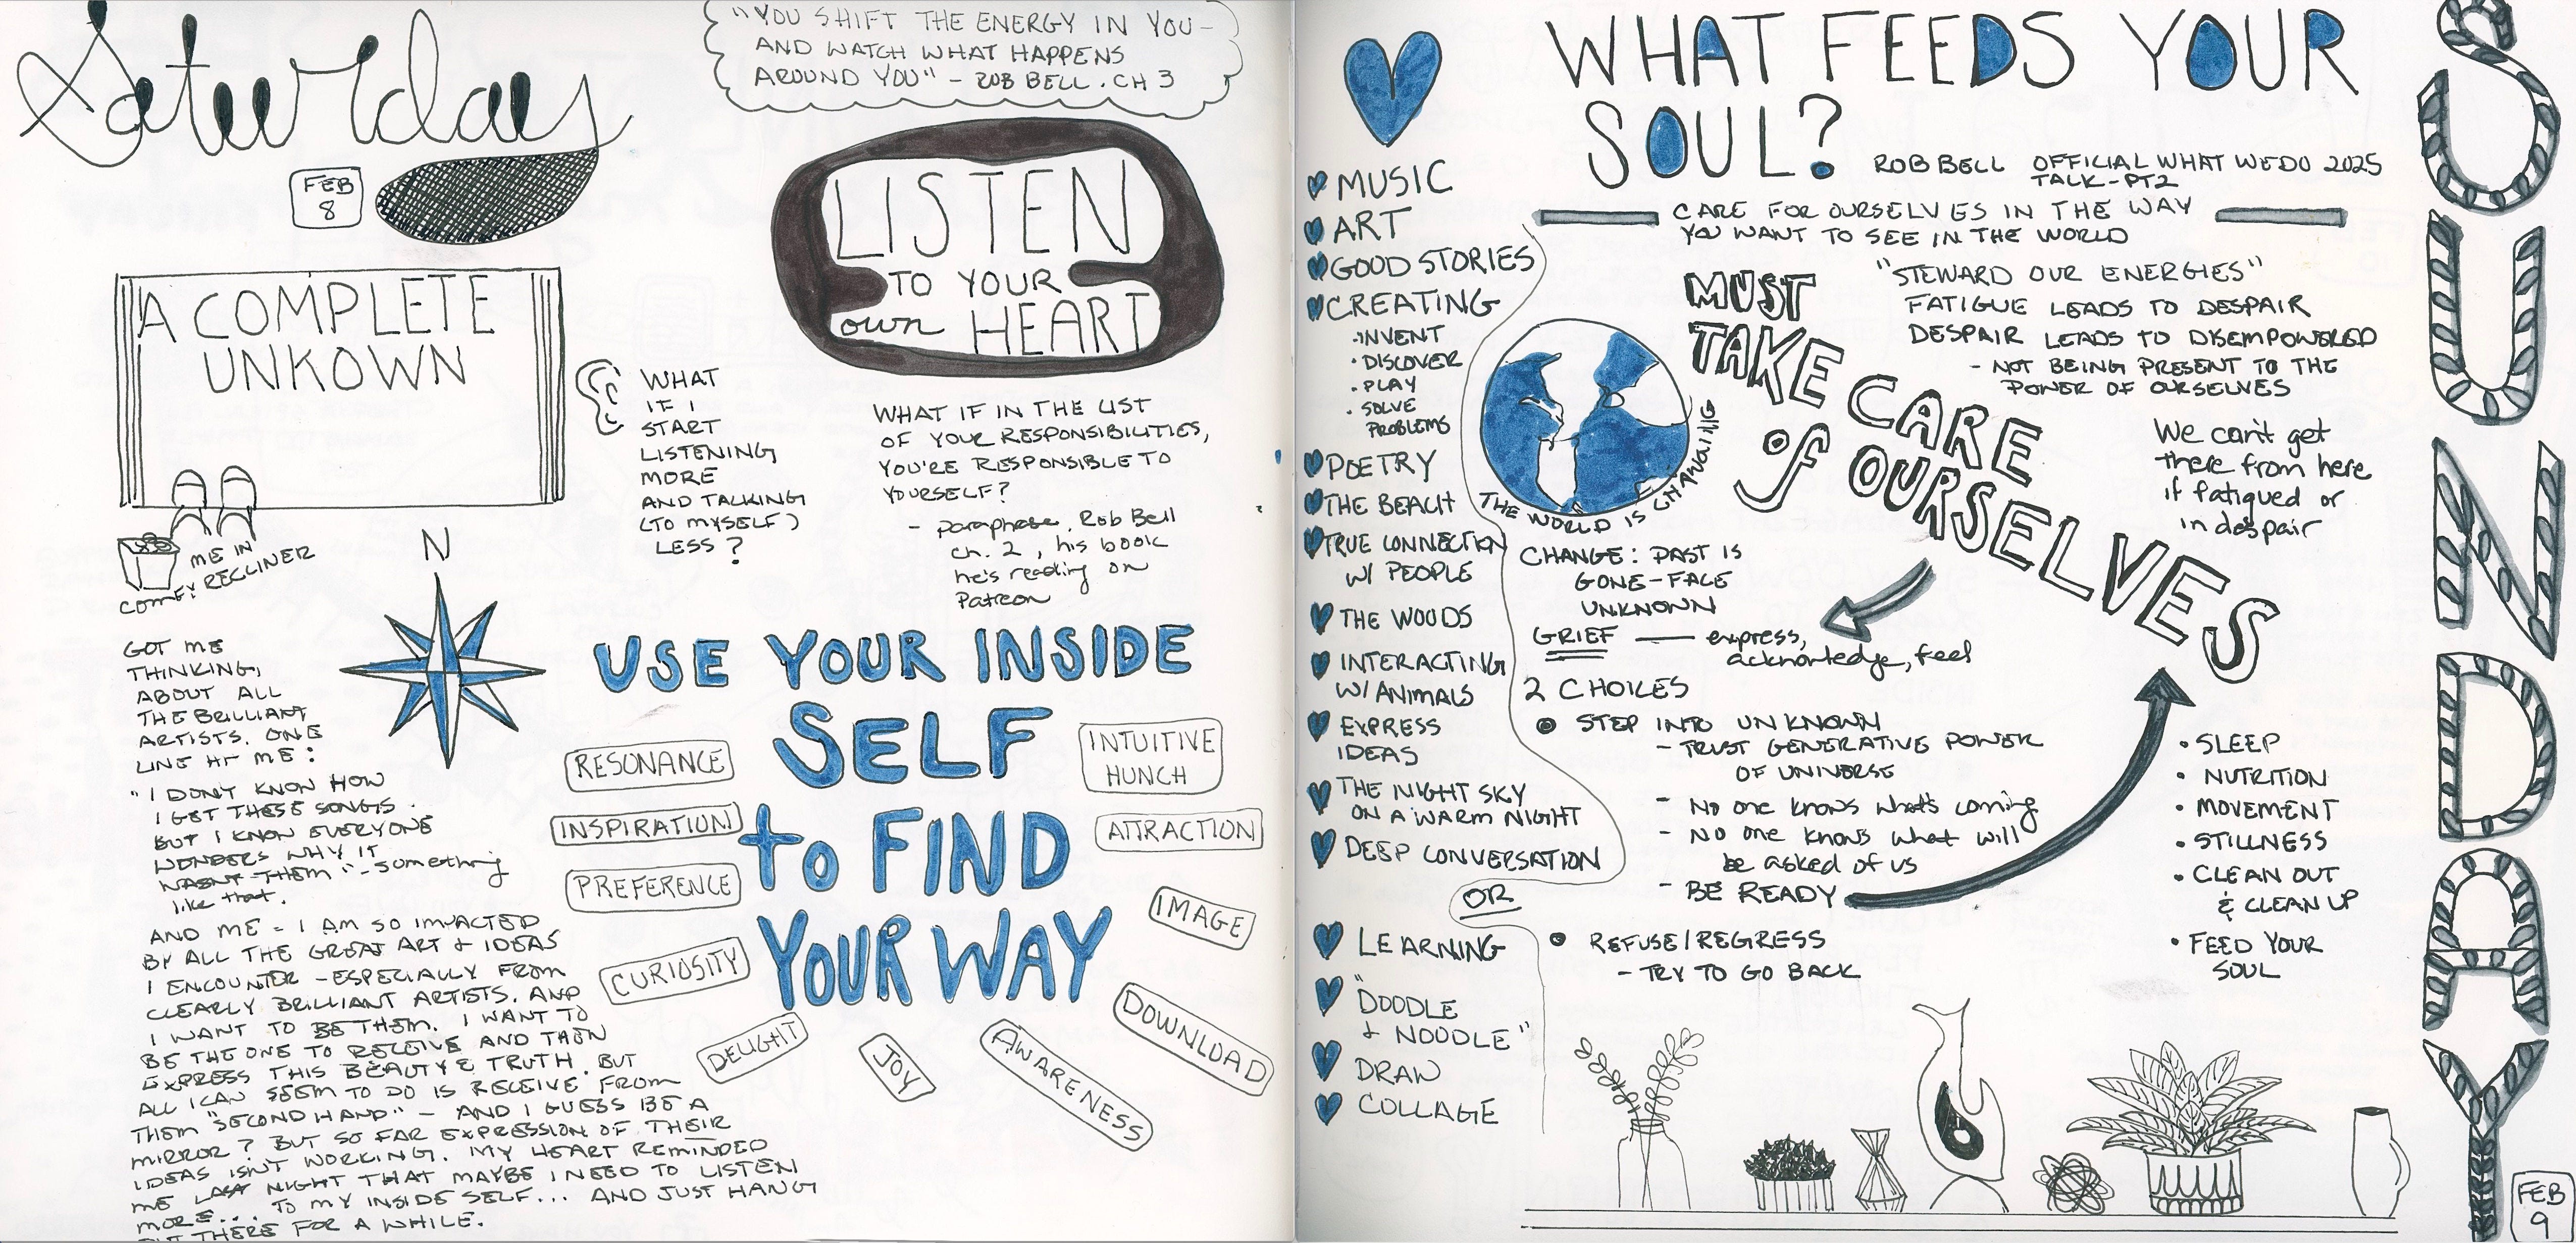 Saturday
FEB
8
"YOU SHIFT THE ENERGY IN YOU-
AND WATCH WHAT HAPPENS
AROUND YOU" - ROB BELL . CH 3
LISTEN
TO YOUR
own HEART
A COMPLETE
UNKOWN
ME IN
COMFY RECLINER
WHAT
IF I
START
LISTENING
MORE
AND TALKING
(TO MYSELF)
LESS?
WHAT IF IN THE LIST
OF YOUR RESPONSIBILITIES,
YOU'RE RESPONSIBLE TO
YOURSELF?
- paraphrase, Rob Bell
Ch. 2, his book
he's reading on
Patreon
N
GOT ME
THINKING,
ABOUT ALL
THE BRILLIANT
ARTISTS. ONE
LINE HIT ME:
"I DON'T KNOW HOW
I GET THESE SONGS.
BUT I KNOW EVERYONE
WONDERS WHY IT
WASN'T THEM" - something
like that.
AND ME - I AM SO IMPACTED
BY ALL THE GREAT ART & IDEAS
I ENCOUNTER - ESPECIALLY FROM
CLEARLY BRILLIANT ARTISTS. AND
I WANT TO BE THEM. I WANT TO
BE THE ONE TO RECEIVE AND THEN
EXPRESS THIS BEAUTY & TRUTH. BUT
ALL I CAN SEEM TO DO IS RECEIVE FROM
THEM "SECOND HAND" - AND I GUESS BE A
MIRROR? BUT SO FAR EXPRESSION OF THEIR
IDEAS ISN'T WORKING. MY HEART REMINDED
ME LAST NIGHT THAT MAYBE I NEED TO LISTEN
MORE... TO MY INSIDE SELF... AND JUST HANG
OUT THERE FOR A WHILE.
USE YOUR INSIDE
SELF
to FIND
YOUR WAY
RESONANCE
INSPIRATION
PREFERENCE
CURIOSITY
DELIGHT
JOY
AWARENESS
DOWNLOAD
IMAGE
ATTRACTION
INTUITIVE
HUNCH
WHAT FEEDS YOUR
SOUL?
ROB BELL OFFICIAL WHAT WE DO 2025
TALK - PT2
MUSIC
ART
GOOD STORIES
CREATING
· INVENT
· DISCOVER
· PLAY
· SOLVE
PROBLEMS
POETRY
THE BEACH
TRUE CONNECTION
W/ PEOPLE
THE WOODS
INTERACTING
W/ ANIMALS
EXPRESS
IDEAS
THE NIGHT SKY
ON A WARM NIGHT
DEEP CONVERSATION
LEARNING
"DOODLE
& NOODLE"
DRAW
COLLAGE
CARE FOR OURSELVES IN THE WAY
YOU WANT TO SEE IN THE WORLD
"STEWARD OUR ENERGIES"
FATIGUE LEADS TO DESPAIR
DESPAIR LEADS TO DISEMPOWERED
- NOT BEING PRESENT TO THE
POWER OF OURSELVES
MUST
TAKE CARE
of OURSELVES
We can't get
there from here
if fatigued or
in despair
THE WORLD IS CHANGING
CHANGE: PAST IS
GONE - FACE
UNKNOWN
GRIEF — express,
acknowledge, feel
2 CHOICES
STEP INTO UNKNOWN
- TRUST GENERATIVE POWER
OF UNIVERSE
- No one knows what's coming
- No one knows what will
be asked of us
- BE READY
OR
REFUSE/REGRESS
- TRY TO GO BACK
· SLEEP
· NUTRITION
· MOVEMENT
· STILLNESS
· CLEAN OUT
& CLEAN UP
· FEED YOUR
SOUL
SUNDAY
FEB
9